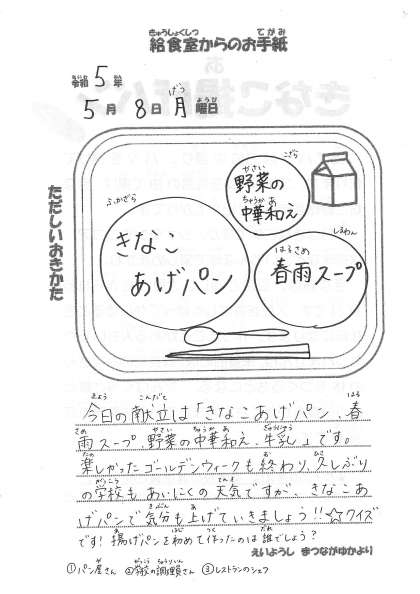 給食室からのお手紙
令和5年
5月8日月曜日
ただしいおきかた
きなこ
あげパン
野菜の
中華和え
春雨スープ
今日の献立は「きなこあげパン、春
雨スープ、野菜の中華和え、牛乳」です。
楽しかったゴールデンウィークも終わり、久しぶり
の学校もあいにくの天気ですが、きなこあ
げパンで気分も上げていきましょう!!☆クイズ
です!揚げパンを初めて作ったのは誰でしょう?
えいようし まつながゆかより
①パン屋さん ②学校の調理員さん ③レストランのシェフ